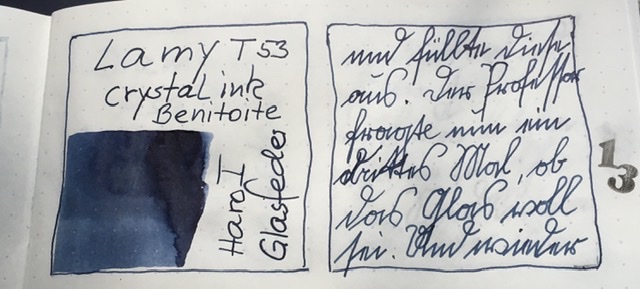 Lamy T53
crystal ink
Benitoite
HaroT
Glasfeder
und füllte diese
aus. Der Professor
fragte nun ein
drittes Mal, ob
das Glas voll
sei. Und wieder
13